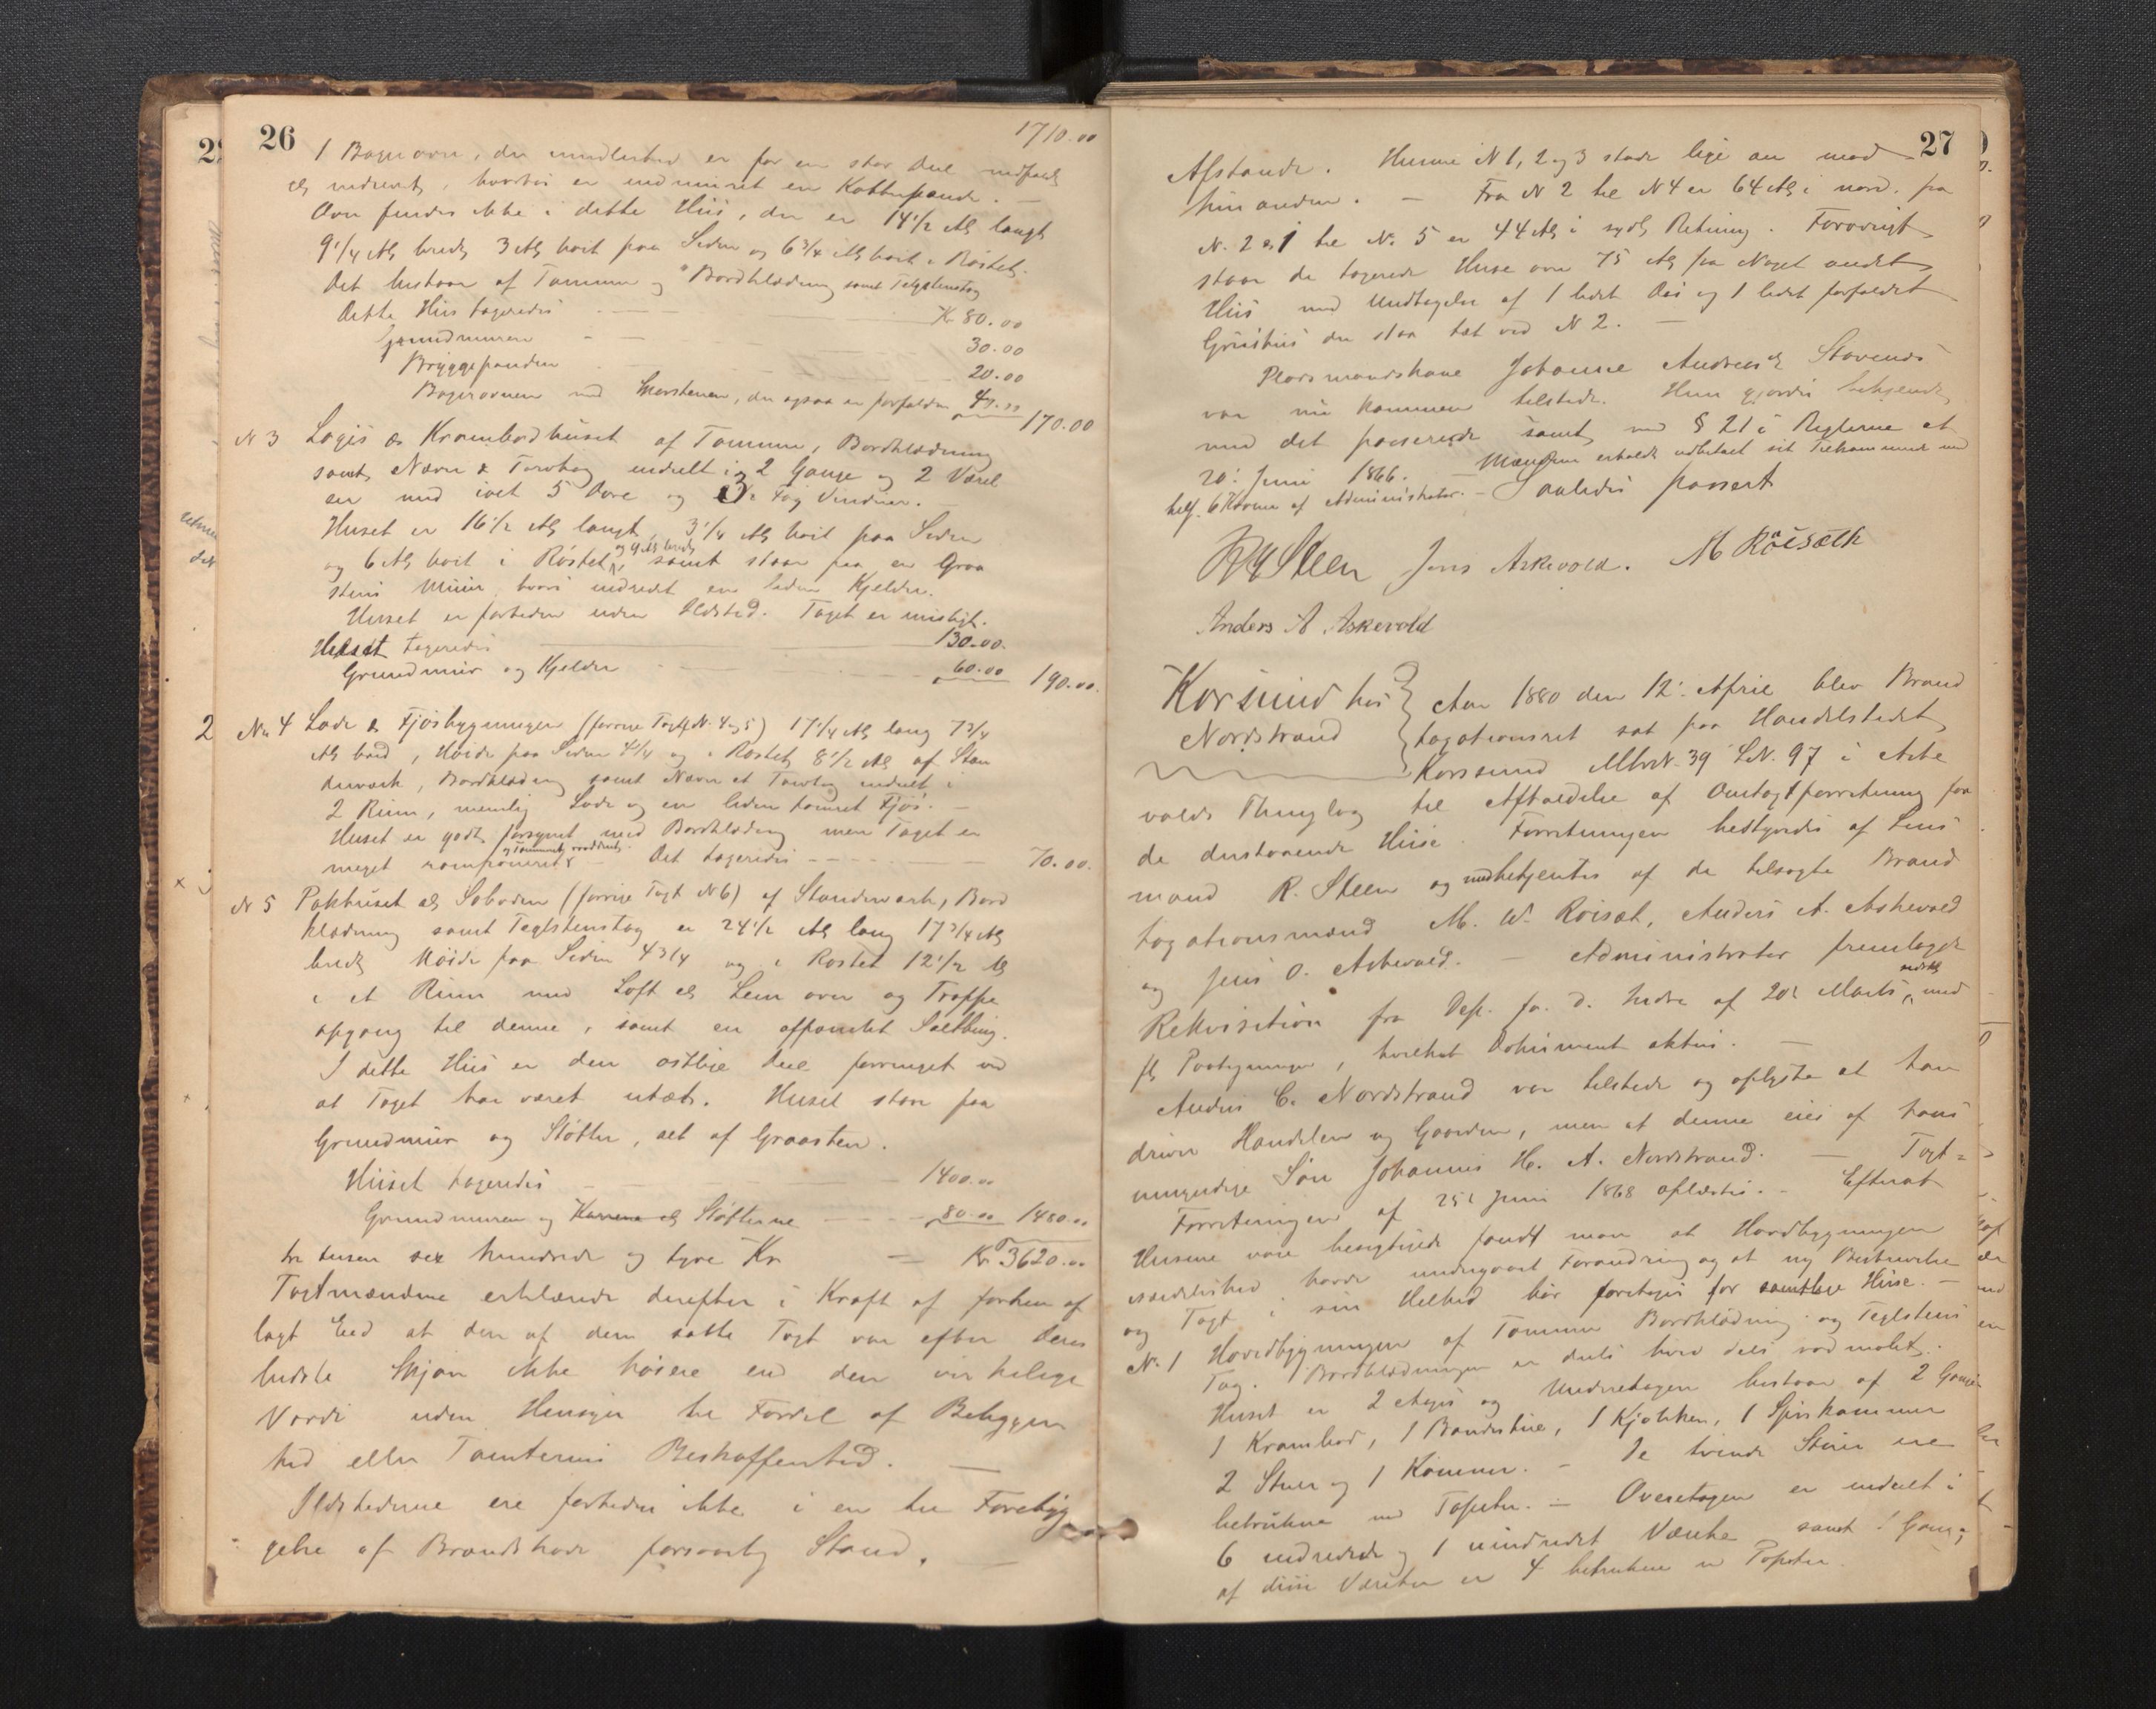 26
1710.00
1 Bagerovn, der imidlertid er for en stor Deel nedfaldt
og indrevet, hvorhos er indmuret en Kattepande. —
Ovn findes ikke i dette Hus, der er 14 1/2 Al. langt
9 1/4 Al. bredt 3 Al. høit paa Siden og 6 3/4 Al. høit i Røstet.
Det bestaar af Tømmer og Bordklædning samt Teglstenstag
Dette Huus taxeredes — Kr 80.00
Grundmuren — 30.00
Bryggepanden — 20.00
Bagerovnen med Skorstenen, der ogsaa er forfalden 40.00 170.00
N 3 Logis & Krambodhuset af Tømmer, Bordklædning
samt Næver & Torvtag inddelt i 2 Gange og 2 Værel
ser med ialt 5 Døre og 3 Fag Vinduer.
Huset er 16 1/2 Al. langt, 3 1/4 Al. høit paa Siden
og 6 Al. høit i Røstet og 9 Al. bredt samt staar paa en Graa
steens Muur, hvori indredet en liden Kjelder.
Huset er fortiden uden Ildsted. Taget er misligt.
Huset taxeredes — 130.00.
Grundmuur og Kjelder — 60.00 190.00.
2 No 4 Lade & Fjøsbygningen (forrige Taxt N. 4 og 5) 17 1/4 Al. lang 7 3/4
Al. bred, Høide paa Siden 4 1/4 og i Røstet 8 1/2 Al. af Stan
derværk, Bordklædning samt Næver et Torvtag inddelt i
2 Rum, nemlig Lade og en liden tømret Fjøs. —
Huset er godt forsynet med Bordklædning men Taget er
meget ramponeret og Tømmeret raaddent. Det taxeredes — 70.00.
N 5 Pakhuset el. Søboden (forrige Taxt N 6) af Standerværk, Bord
klædning samt Teglstenstag er 24 1/2 Al. lang 17 3/4 Al.
bredt Høide paa Siden 4 3/4 og i Røstet 12 1/2 Al.
i et Rum med Loft el. Lem over og Trappe
opgang til denne, samt en afpanelet Saltbing.
I dette Hus er den østlige Deel forringet ved
at Taget har været utæt. Huset staar paa
Grundmuur og Støtter, alt af Graasten.
Huset taxeredes — 1400.00
Grundmuren og Karrene el. Støtterne — 80.00 1480.00
tre tusen sex hundrede og tyve Kr = Kr 3620.00
Taxtmændene erklærede derefter i Kraft af forhen af
lagt Eed at den af dem satte Taxt var efter deres
bedste Skjøn ikke høiere end den virkelige
Værdi uden Hensyn til Fordel af Beliggen
hed eller Tomternes Beskaffenhed. —
Ildstederne ere fortiden ikke i en til Forebyg
gelse af Brandskade forsvarlig Stand. —
27
Afstande. Husene N 1, 2 og 3 staar lige an mod
hinanden. — Fra N 2 til N 4 er 64 Al. i nord. fra
N. 2 & 1 til No 5 er 44 Al. i sydl. Retning. Forøvrigt
staar de taxerede Huse over 75 Al. fra Noget andet
Huus med Undtagelse af 1 lidet Das og 1 lidet forfaldet
Gruehus der staa tæt ved N 2. —
Pladsmandskone Johanne Andreasd. Stavenæs
var nu kommen tilstede. Hun gjordes bekjendt
med det passerede samt med § 21 i Reglerne af
20. Juni 1866. — Mændene erholdt udbetalt sit Tilkommende med
tilf. 6 Kroner af Administrator. — Saaledes passert
R Steen Jens Askevold. M Röisæth
Anders A. Askevold
Korssund hos Nordstrand
Aar 1880 den 12. April blev Brand
taxationsret sat paa Handelstedet
Korssund Mtr.N. 39 L.N. 97 i Aske
volds Thinglag til Afholdelse af Omtaxtforretning paa
de derstaaende Huse. Forretningen bestyredes af Lens
mand R. Steen og medbetjentes af de tilsagte Brand
taxationsmænd M. W. Röisæt, Anders A. Askevold
og Jens O. Askevold. — Administrator fremlagde
Rekvisition fra Dep. for d. Indre af 20. Marts sidstl. med
fl. Paategninger, hvilket Dokument aktus. —
Anders C. Nordstrand var tilstede og oplyste at han
driver Handelen og Gaarden, men at denne eies af hans
umyndige Søn Johannes H. A. Nordstrand. — Taxt=
Forretningen af 25. Juni 1868 oplæstes. — Efterat
Husene vare besigtigede fandt man at Hovedbygningen
især havde undergaaet Forandring og at ny Beskrivelse
og Taxt i sin Helhed bør foretages for samtlige Huse. —
N. 1 Hovedbygningen af Tømmer Bordklædning og Teglstens
Tag. Bordklædningen er dels hvid dels rødmalet.
Huset er 2 Etages og Underetagen bestaar af 2 Gange
1 Krambod, 1 Bondestue, 1 Kjøkken, 1 Spiskammer
2 Stuer og 1 Kammer. — De tvende Stuer ere
betrukne med Tapeter. — Overetagen er inddelt i
6 indredede og 1 uindredet Værelse samt 1 Gang;
af disse Værelser er 4 betrukne m Tapeter.